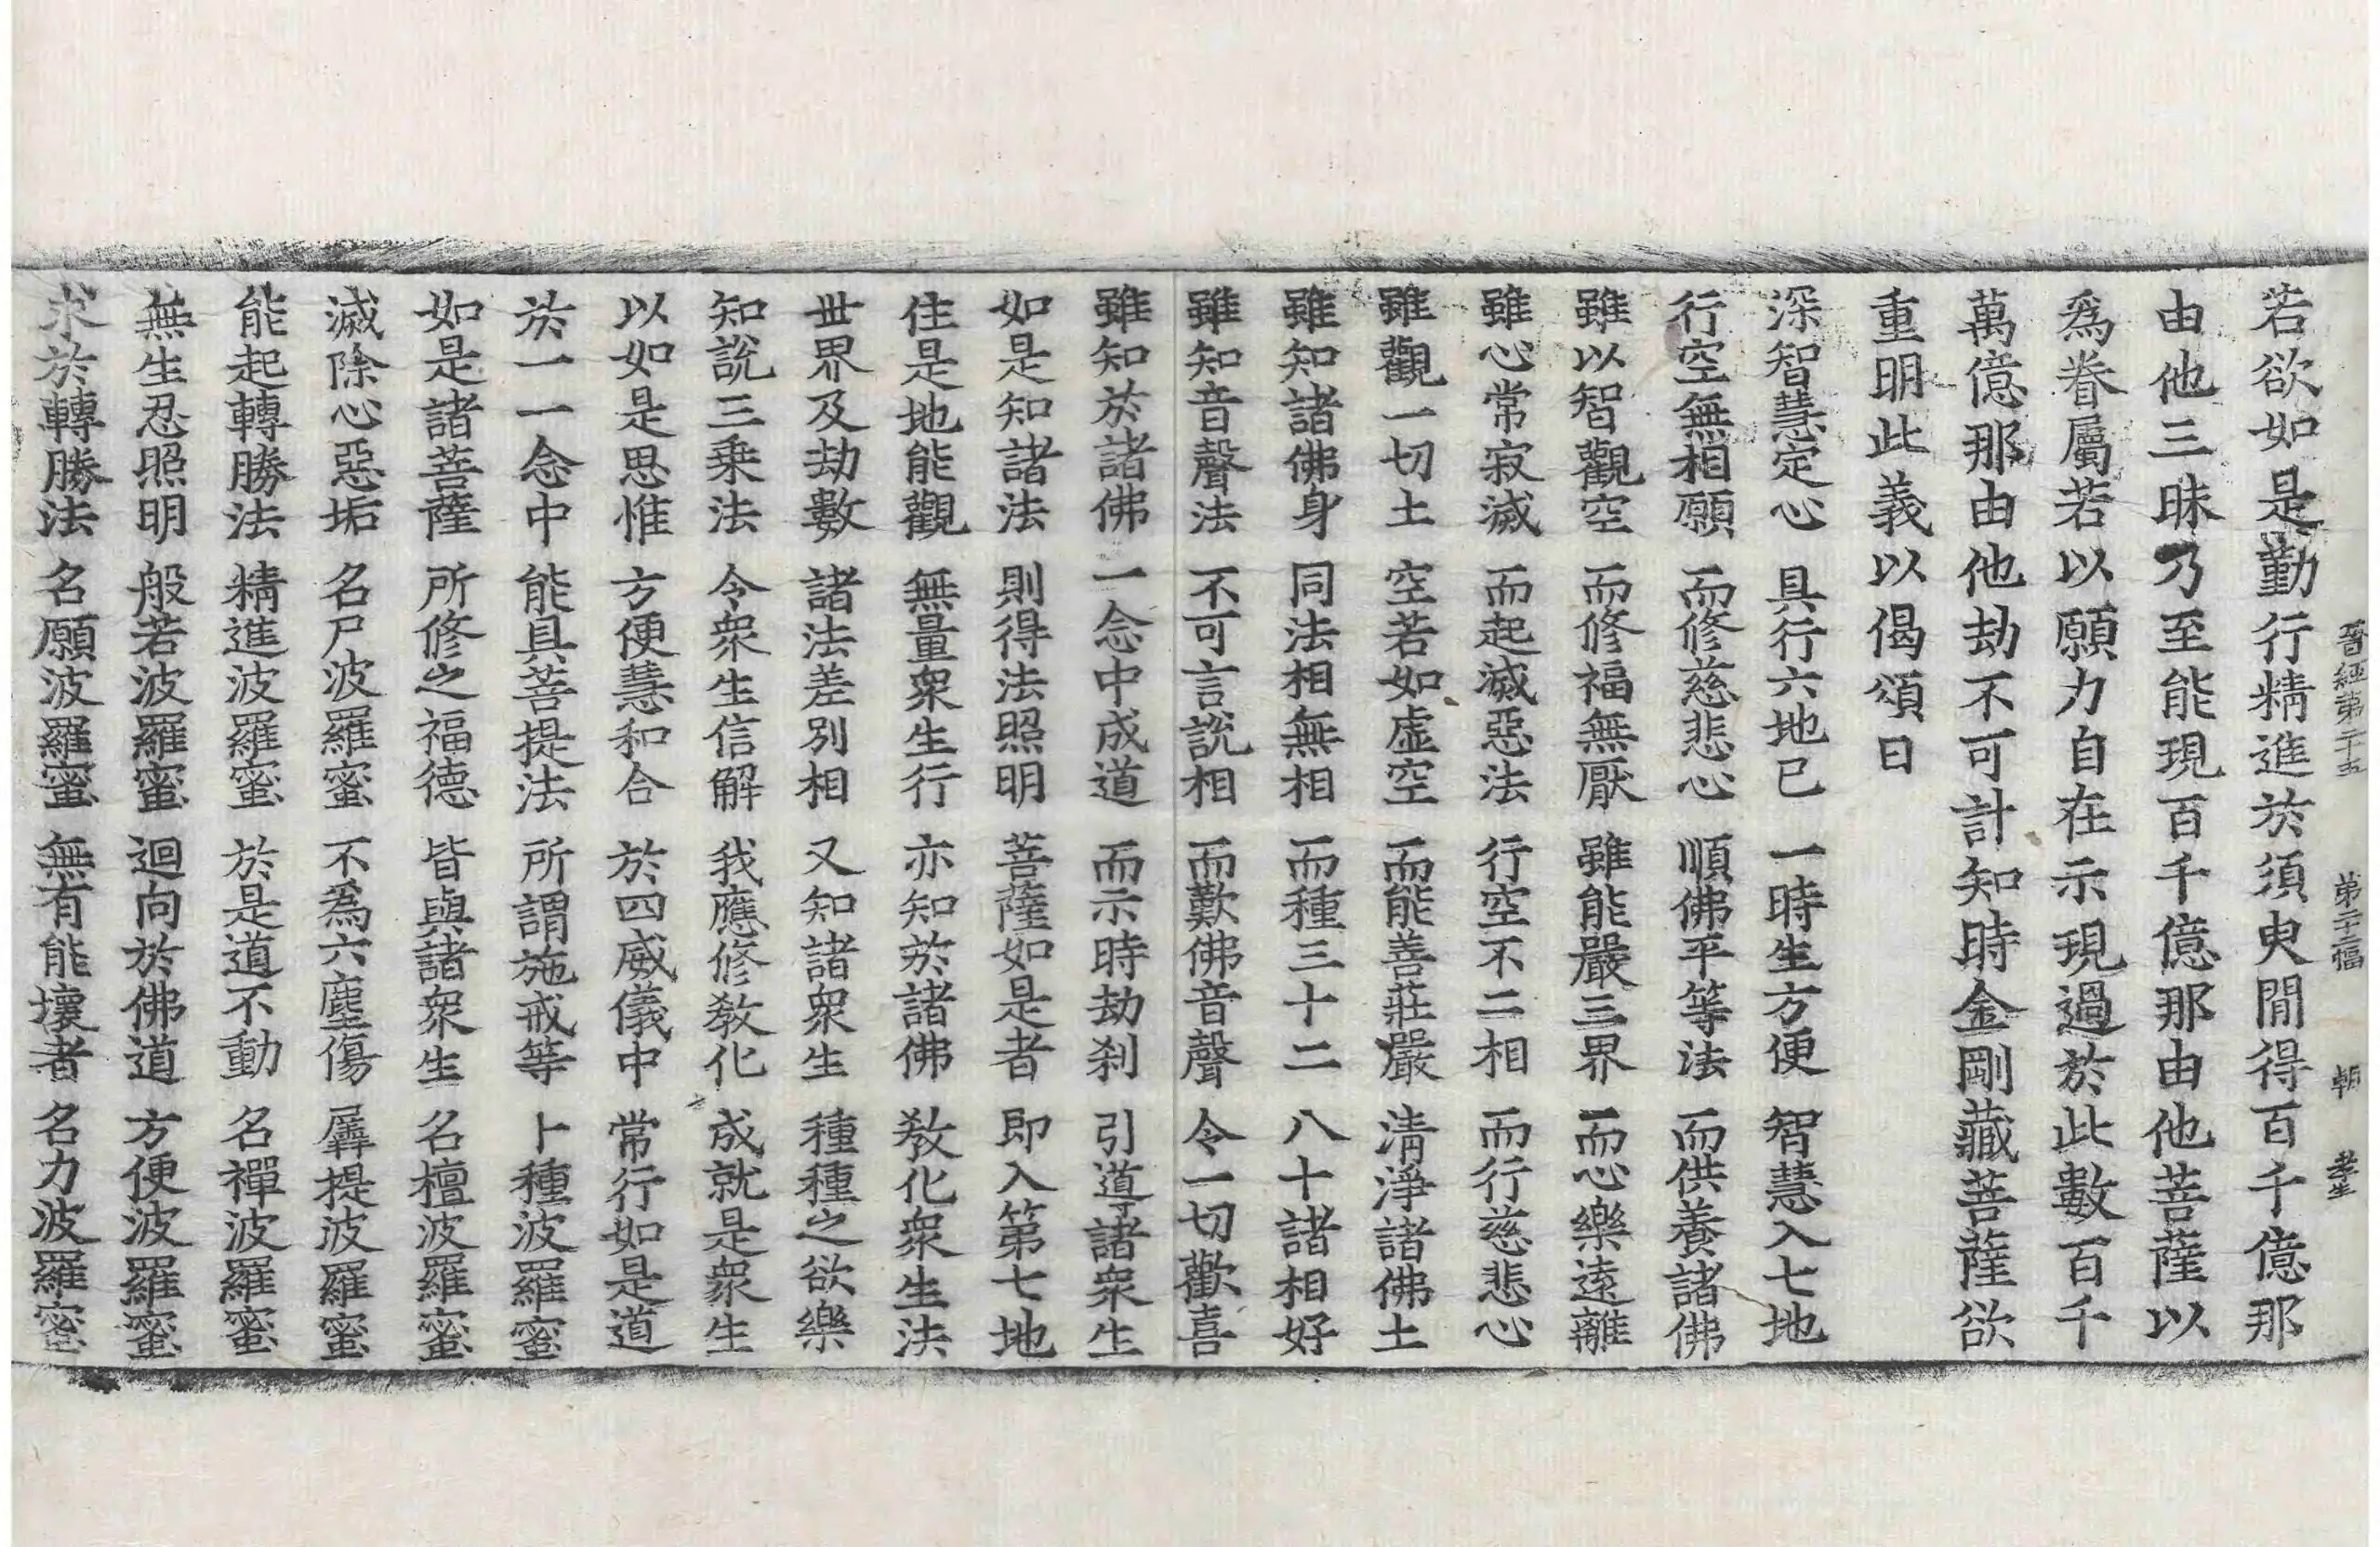 晉經第二十五 第二十二幅 朝 孝生
若欲如是勤行精進於須臾閒得百千億那
由他三昧乃至能現百千億那由他菩薩以
爲眷屬若以願力自在示現過於此數百千
萬億那由他劫不可計知時金剛藏菩薩欲
重明此義以偈頌曰
深智慧定心 具行六地已 一時生方便 智慧入七地
行空無相願 而修慈悲心 順佛平等法 而供養諸佛
雖以智觀空 而修福無厭 雖能嚴三界 而心樂遠離
雖心常寂滅 而起滅惡法 行空不二相 而行慈悲心
雖觀一切土 空若如虛空 而能善莊嚴 清淨諸佛土
雖知諸佛身 同法相無相 而種三十二 八十諸相好
雖知音聲法 不可言說相 而歎佛音聲 令一切歡喜
雖知於諸佛 一念中成道 而示時劫刹 引導諸衆生
如是知諸法 則得法照明 菩薩如是者 即入第七地
住是地能觀 無量衆生行 亦知於諸佛 教化衆生法
世界及劫數 諸法差別相 又知諸衆生 種種之欲樂
知說三乗法 令衆生信解 我應修教化 成就是衆生
以如是思惟 方便慧和合 於四威儀中 常行如是道
於一一念中 能具菩提法 所謂施戒等 卜種波羅蜜
如是諸菩薩 所修之福德 皆與諸衆生 名檀波羅蜜
滅除心惡垢 名尸波羅蜜 不爲六塵傷 羼提波羅蜜
能起轉勝法 精進波羅蜜 於是道不動 名禪波羅蜜
無生忍照明 般若波羅蜜 迴向於佛道 方便波羅蜜
求於轉勝法 名願波羅蜜 無有能壞者 名力波羅蜜